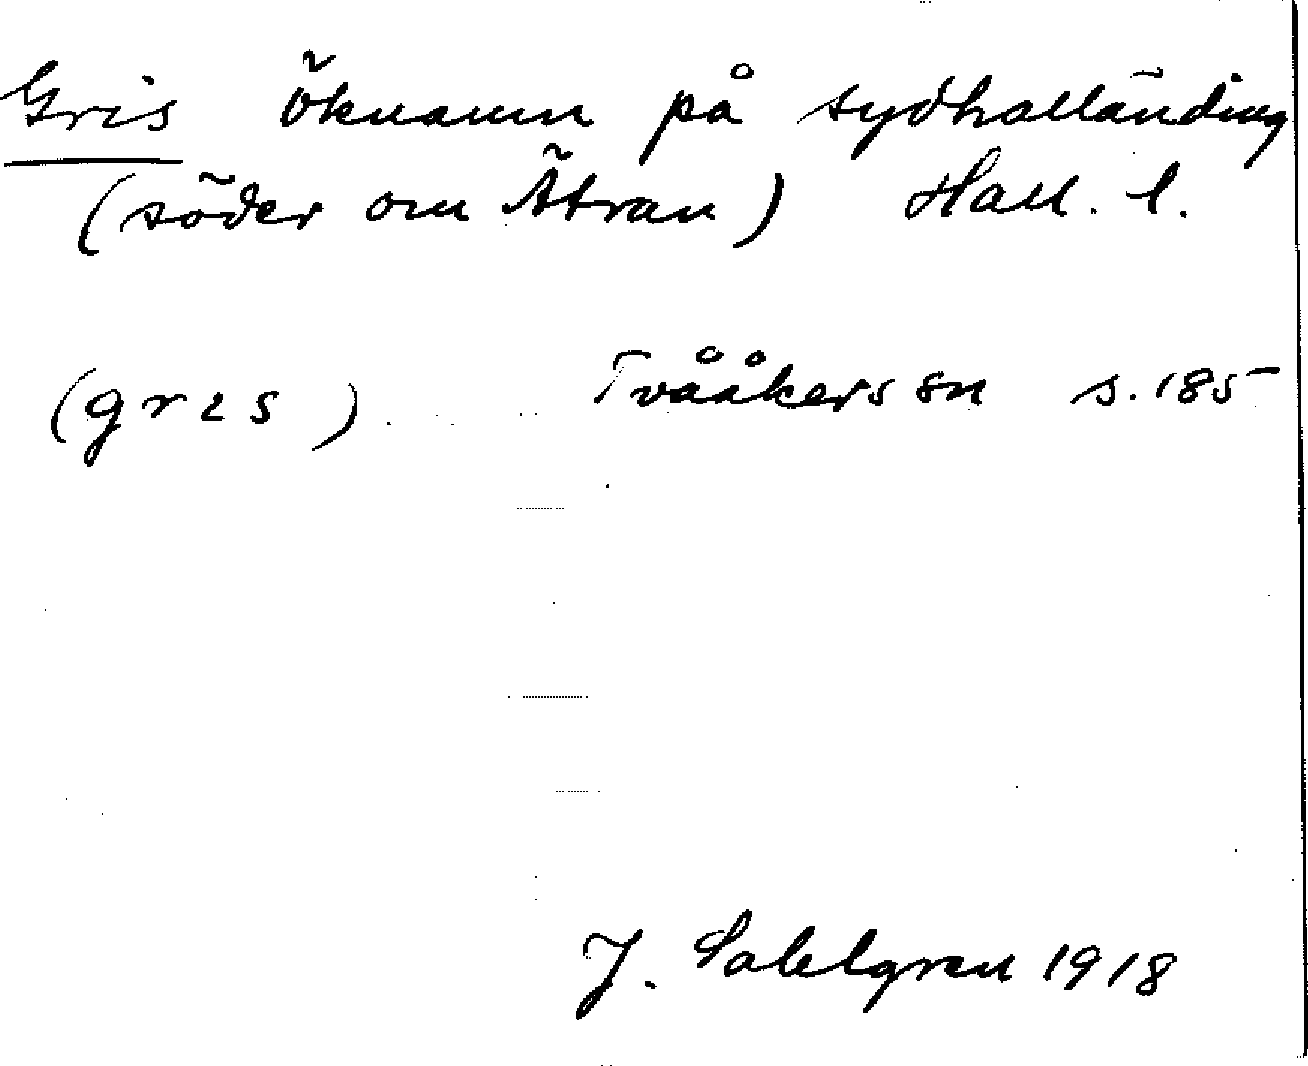 Gris öknamn på sydhalländing
(söder om Ätran) Hall. l.
(gris) Tvååkers sn s. 185
J. Sahlgren 1918